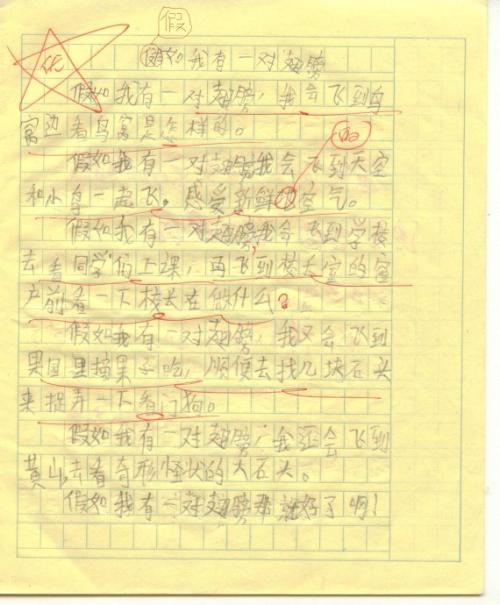 假
优
假如我有一对翅膀
假如我有一对翅膀，我会飞到鸟
窝边看鸟窝是怎样的。
的
假如我有一对翅膀我会飞到天空
和小鸟一起飞。感受新鲜的空气。
假如我有一对翅膀，我会飞到学校
去看同学们上课，再飞到校长室的窗
户前看一下校长在做什么？
假如我有一对翅膀，我又会飞到
果园里摘果子吃，顺便去找几块石头
来捉弄一下看门狗。
假如我有一对翅膀，我还会飞到
黄山去看奇形怪状的大石头。
假如我有一对翅膀那就好了啊！